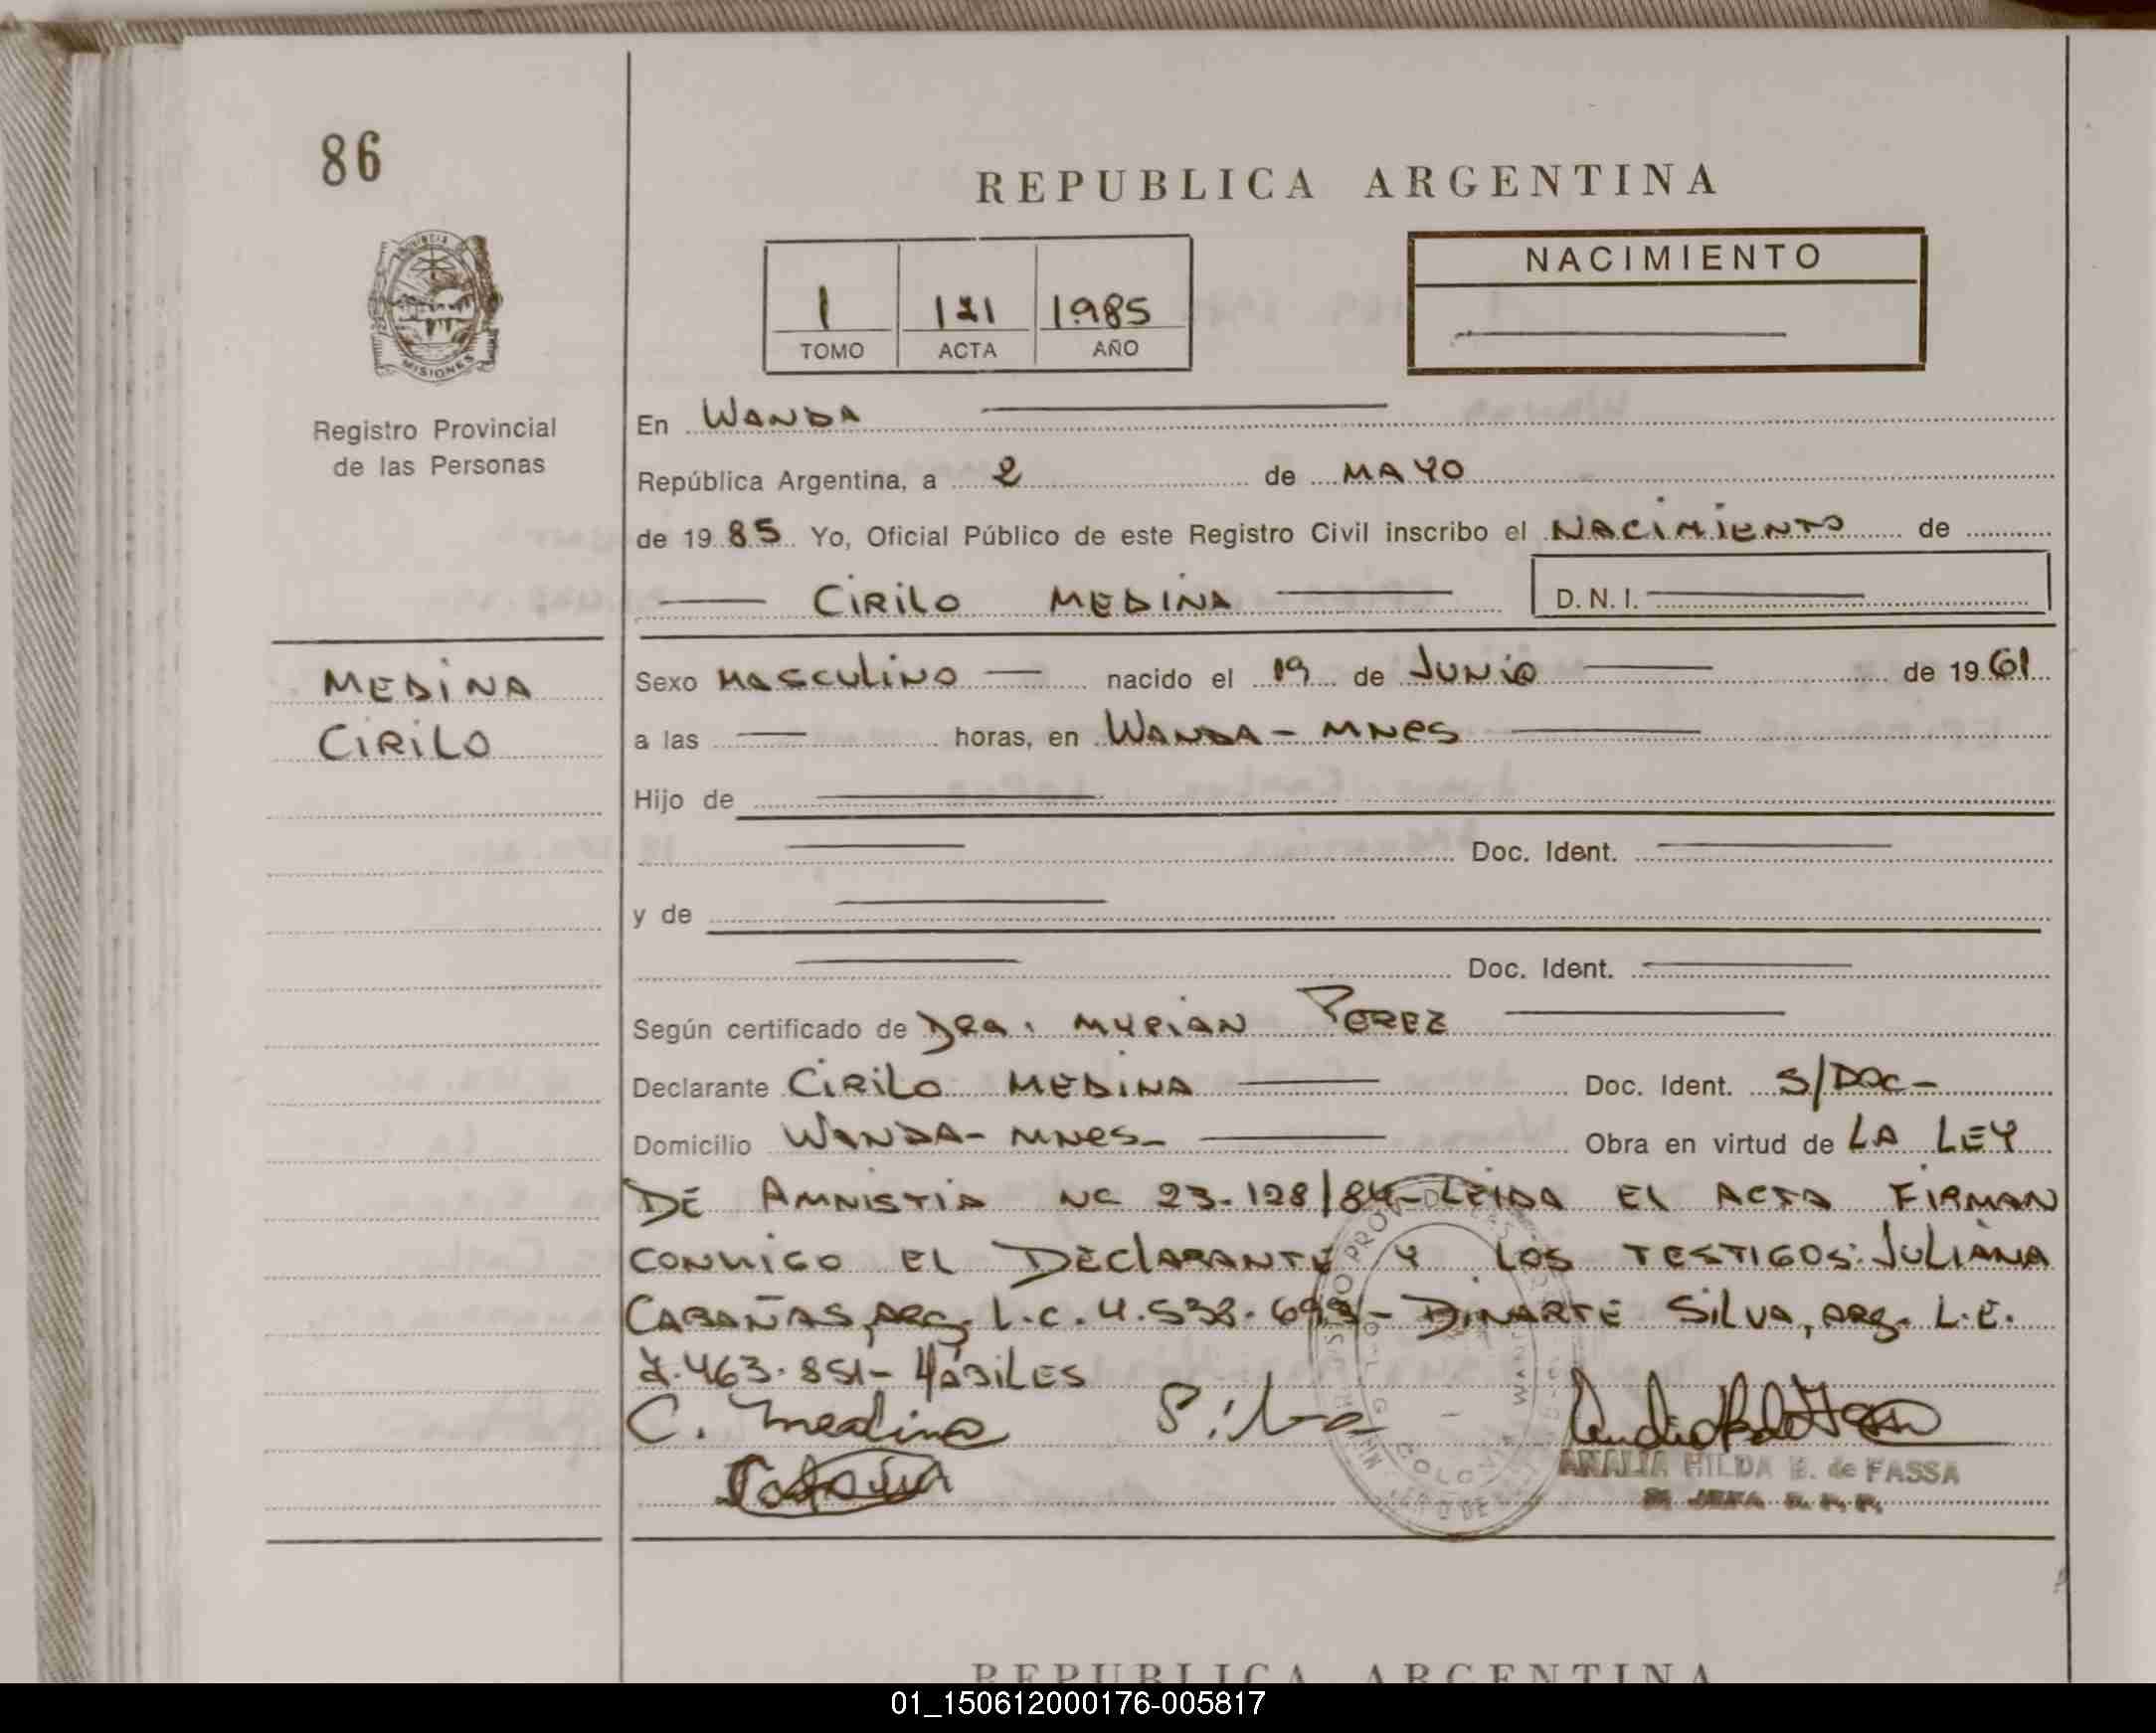 86
REPUBLICA ARGENTINA
NACIMIENTO
1 121 1985
TOMO ACTA AÑO
PROVINCIA DE
MISIONES
Registro Provincial
de las Personas
En WANDA
República Argentina, a 2 de MAYO
de 1985 Yo, Oficial Público de este Registro Civil inscribo el NACIMIENTO de
CIRILO MEDINA D.N.I.
MEDINA
CIRILO
Sexo MASCULINO nacido el 19 de JUNIO de 1961
a las horas, en WANDA - MNES
Hijo de
Doc. Ident.
y de
Doc. Ident.
Según certificado de DRA. MYRIAN PEREZ
Declarante CIRILO MEDINA Doc. Ident. S/DOC-
Domicilio WANDA- MNES- Obra en virtud de LA LEY
DE AMNISTIA Nº 23.128/84- LEIDA EL ACTA FIRMAN
CONMIGO EL DECLARANTE Y LOS TESTIGOS: JULIANA
CABAÑAS, ARG. L.C. 4.538.693- DINARTE SILVA, ARG. L.E.
7.463.851- HÁBILES
C. Medina Silva
ANALIA HILDA B. de FASSA
JEFA R.P.P.
REPUBLICA ARGENTINA
01_150612000176-005817